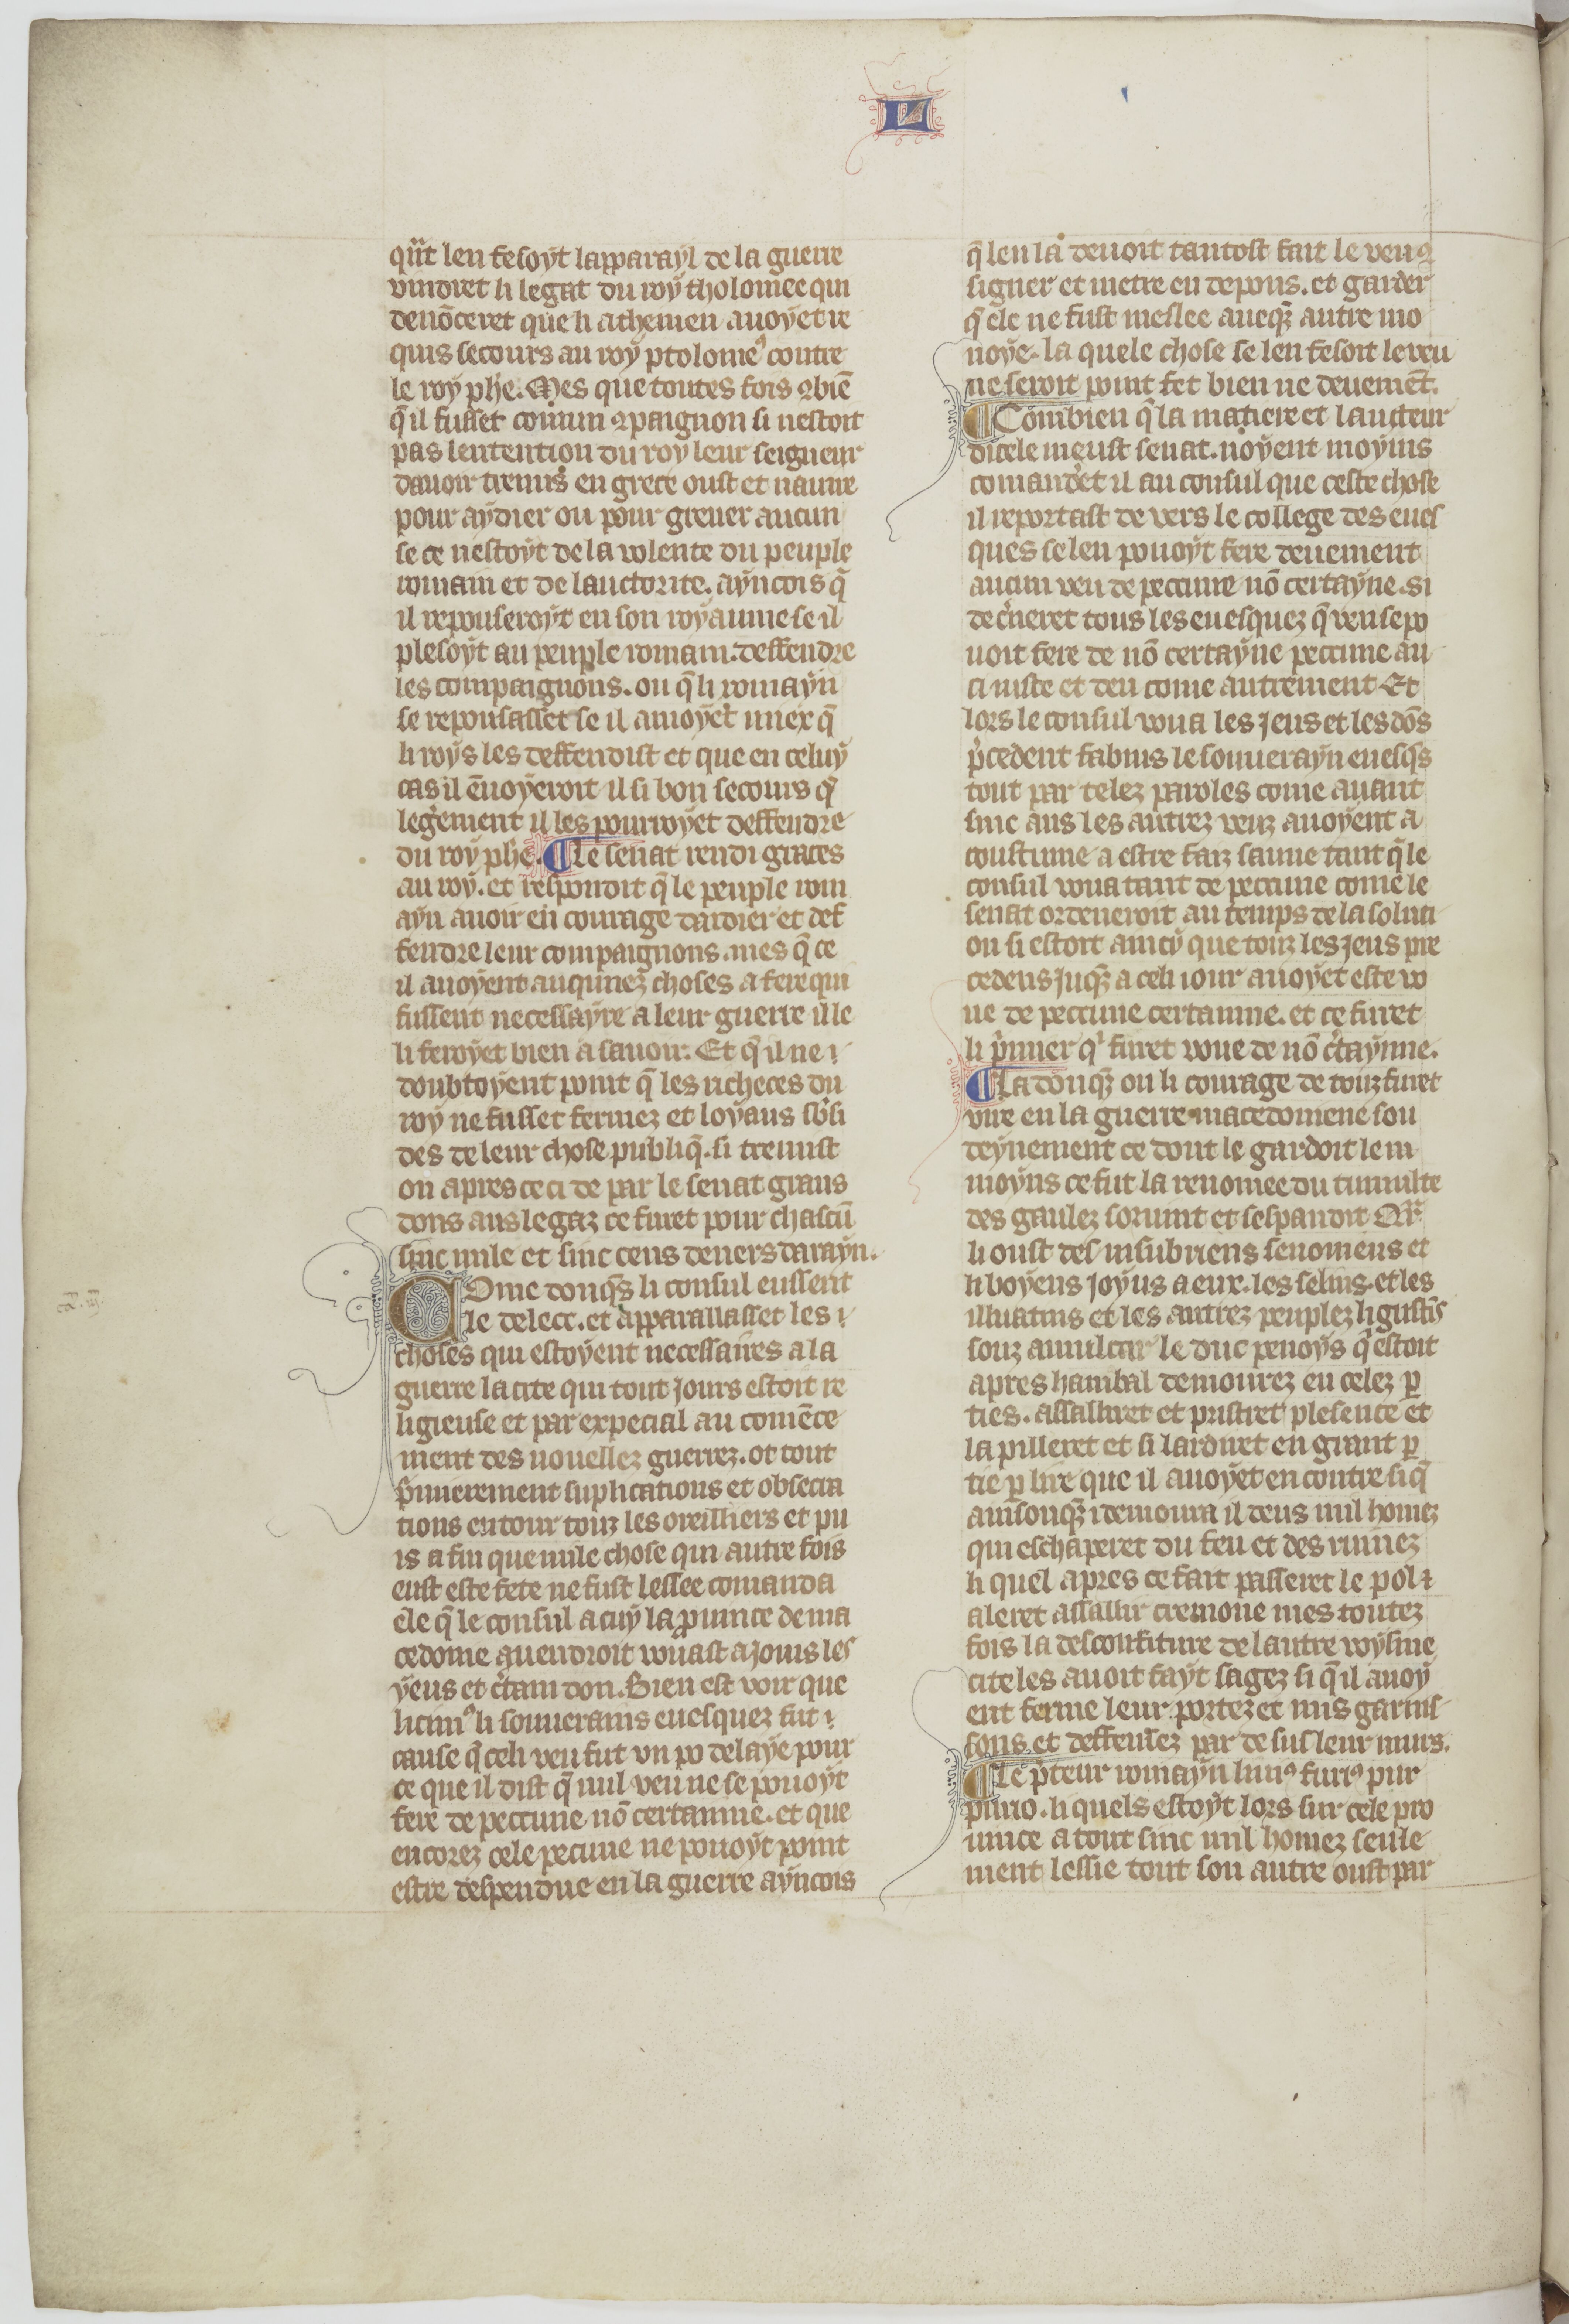 L
qñt len fesoyt lapparayl de la guerre
vindret li legat du roy tholomee qui
denõceret que li athenien avoyet re
quis secours au roy ptolomeꝰ contre
le roy phẽ. Mes que toutes fois ꝯbiẽ
q̃ il fusset comun ꝯpaignon si nestoit
pas lentention du roy leur seigneur
davoir tremis en grece oust et navire
pour aydier ou pour grever aucun
se ce nestoyt de la volente du peuple
romain et de lauctorite. ayncois q̃
il reposeroyt en son royaume se il
plesoyt au peuple romain. deffendre
les compaignons. ou q̃ li romayn
se reposasset se il amoyet miex q̃
li roys les deffendist et que en celuy
cas il ẽvoyeroit il si bon secours q̃
legerement il les pourroyet deffendre
du roy phẽ. ¶ Le senat rendi graces
au roy. et respondit q̃ le peuple rom
ayn avoir en courage daidier et def
fendre leur compaignons. mes q̃ ce
il avoyent auqunez choses a fere qui
fussent necessayre a leur guerre il le
li feroyet bien a savoir. Et q̃ il ne ı
doubtoyent point q̃ les richeces du
roy ne fusset fermez et loyaus sb̾si
des de leur chose publiq̃. si tremist
on apres ce ci de par le senat grans
dons aus legaz ce furet pour chascũ
sinc mile et sinc cens deners darayn.
Come donq̃s li consul eussent
le delect. et apparallasset les ı
choses qui estoyent necessaires a la
guerre la cite qui tout jours estoit re
ligieuse et par expecial au comẽce
ment des nouellez guerrez. ot tout
p̃mierement suplications et obsecra
tions entour touz les oreilliers et pu
is a fin que nule chose qui autre fois
eust este fete ne fust lessee comanda
ele q̃ le consul a cuy la prouince de ma
cedoine avendroit vouast a jouis les
yeus et c̾tain don. Bien est voir que
liciniꝰ li souverains evesquez fut ı
cause q̃ celi veu fut un po delaye pour
ce que il dist q̃ nul veu ne se povoyt
fere de peccune nõ certainne. et que
encorez cele pecune ne povoyt point
estre despendue en la guerre ayncois
q̃ len la devoit tantost fait le veu ꝯ
signer et metre en depous. et garder
q̃ ele ne fust meslee avecq̃z autre mo
noye. la quele chose se len fesoit le veu
ne seroit point fet bien ne devemẽt.
¶ Combien q̃ la matiere et laucteur
dicele meust senat. noyent moyins
comandet il au consul que ceste chose
il reportast de vers le college des eves
ques se len povoyt fere devement
aucun veu de peccune nõ certayne. si
dec̾neret tous les evesquez q̃ veu se po
voit fere de nõ certayne peccune au
ci iuste et deu come autrement. Et
lors le consul voua les jeus et les dõs
p̾cedent fabius le souverayn evesq̃s
tout par telez paroles come avant
sinc ans les autrez veuz avoyent a
coustume a estre faiz sauve tant q̃ le
consul voua tant de peccune come le
senat ordeneroit au temps de la soluti
on si estoit aincy que touz les jeus pre
cedens jusq̃z a celi jour avoyet este vo
ue de peccune certainne. et ce furet
li p̾mier qͥ furet voue de nõ c̾taynne.
¶ La donq̃z ou li courage de touz furet
vire en la guerre macedoniene sou
deynement ce dont le gardoit le m
moyns ce fut la renomee du tumulte
des gaulez sorunit et sespandit Qr̃
li oust des insubriens senoniens et
li boyens joyus a eux. les selins. et les
illuatins et les autrez peuplez ligustĩs
souz amilcar le duc penoys q̃ estoit
apres hanibal demourez en celez p
ties. assalliret et pristret plesence et
la pilleret et si lardiret en grant p
tie p lire que il avoyet en contre si q̃
ainsonq̃z i demoura il deus mil homez
qui eschaperet du feu et des ruinez
li quel apres ce fait passeret le pol ı
aleret assallir cremone mes toutez
fois la desconfiture de lautre voysine
cite les avoit fayt sagez si q̃ il avoy
ent ferme leur portez et mis garnis
sons et deffensez par de sus leur murs.
¶ Le p̾teur romayn luciꝰ furiꝰ pur
purio. li quels estoyt lors sur cele pro
uince a tout sinc mil homez seule
ment lessie tout son autre oust par